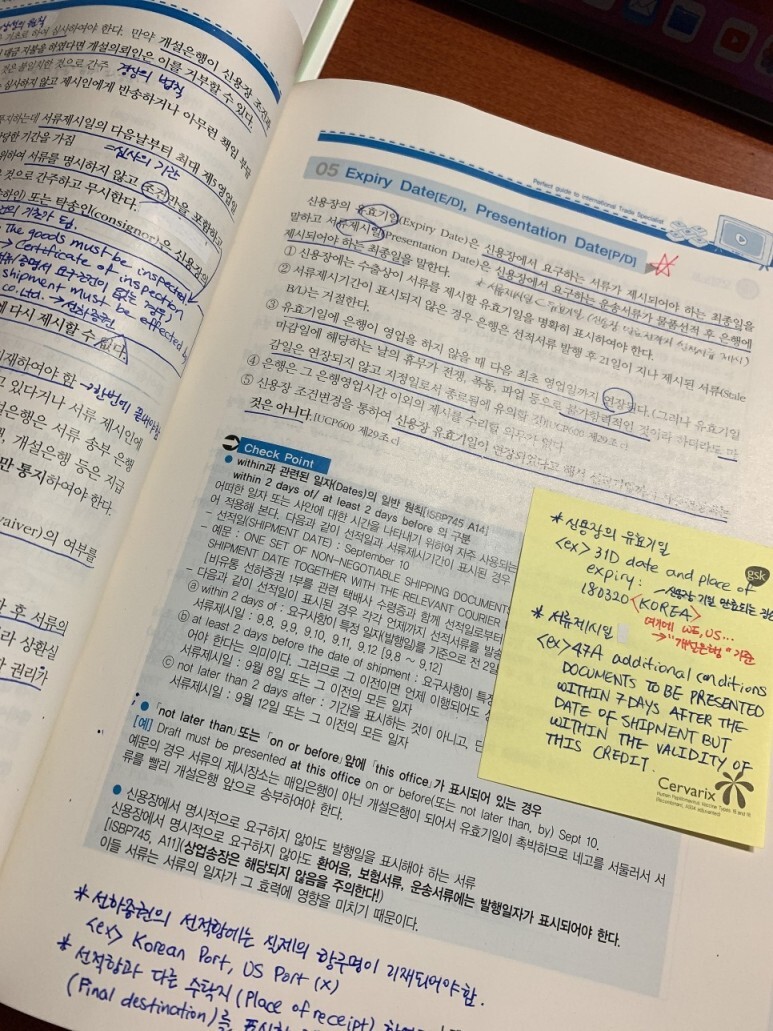 기초로 하여 심사하여야 한다. 만약 개설은행이 신용장 조건과
대금 지불을 하였다면 개설의뢰인은 이를 거부할 수 있다.
것은 불일치한 것으로 간주
심사하지 않고 제시인에게 반송하거나 아무런 책임 부담
하는데 서류제시일의 다음날부터 최대 제5영업일
당한 기간을 가짐 =심사의 기간
위하여 서류를 명시하지 않고 조건만을 포함하고
것으로 간주하고 무시한다.
하인) 또는 탁송인(consignor)은 신용장의
The goods must be inspected
→ Certificate of inspection
shipment must be effected by
co.Ltd. → 선하증권
다시 제시할 수 없다.
재하여야 함 →한번에
고 있다거나 서류 제시인에
은행은 서류 송부 은행
개설은행 등은 지급
만 통지하여야 한다.
waiver)의 여부를
한 후 서류의
라 상환실
자 권리가
Perfect guide to International Trade Specialist
05 Expiry Date[E/D], Presentation Date[P/D]
신용장의 유효기일(Expiry Date)은 신용장에서 요구하는 서류가 제시되어야 하는 최종일을
말하고 서류제시일(Presentation Date)은 신용장에서 요구하는 운송서류가 물품선적 후 은행에
제시되어야 하는 최종일을 말한다.
① 신용장에는 수출상이 서류를 제시할 유효기일을 명확히 표시하여야 한다.
② 서류제시기간이 표시되지 않은 경우 은행은 선적서류 발행 후 21일이 지나 제시된 서류(Stale
B/L)는 거절한다.
③ 유효기일에 은행이 영업을 하지 않을 때 다음 최초 영업일까지 연장된다.(그러나 유효기일
마감일에 해당하는 날의 휴무가 전쟁, 폭동, 파업 등으로 불가항력적인 것이라 하더라도 마
감일은 연장되지 않고 지정일로서 종료됨에 유의할 것)[UCP600 제29조 c]
④ 은행은 그 은행영업시간 이외의 제시를 수리할 의무가 없다.
⑤ 신용장 조건변경을 통하여 신용장 유효기일이 연장되었다고 해서
것은 아니다.[UCP600 제29조 c]
Check Point
● within과 관련된 일자(Dates)의 일반 원칙[ISBP745 A14]
within 2 days of/ at least 2 days before 의 구분
어떠한 일자 또는 사안에 대한 시간을 나타내기 위하여 자주 사용되는
어 적용해 본다. 다음과 같이 선적일과 서류제시기간이 표시된 경우
- 선적일(SHIPMENT DATE) : September 10
- 예문 : ONE SET OF NON-NEGOTIABLE SHIPPING DOCUMENTS
SHIPMENT DATE TOGETHER WITH THE RELEVANT COURIER
[비유통 선하증권 1부를 관련 택배사 수령증과 함께 선적일로부터
- 다음과 같이 선적일이 표시된 경우 각각 언제까지 선적서류를 발송
ⓐ within 2 days of : 요구사항이 특정 일자(발행일)를 기준으로 전 2일
서류제시일 : 9.8, 9.9, 9.10, 9.11, 9.12 [9.8 ~ 9.12]
ⓑ at least 2 days before the date of shipment : 요구사항이 특정
어야 한다는 의미이다. 그러므로 그 이전이면 언제 이행되어도
서류제시일 : 9월 8일 또는 그 이전의 모든 일자
ⓒ not later than 2 days after : 기간을 표시하는 것이 아니고,
서류제시일 : 9월 12일 또는 그 이전의 모든 일자
● 「not later than」 또는 「on or before」 앞에 「this office」가 표시되어 있는 경우
[예] Draft must be presented at this office on or before(또는 not later than, by) Sept 10.
예문의 경우 서류의 제시장소는 매입은행이 아닌 개설은행이 되어서 유효기일이 촉박하므로 네고를 서둘러서 서
류를 빨리 개설은행 앞으로 송부하여야 한다.
● 신용장에서 명시적으로 요구하지 않아도 발행일을 표시해야 하는 서류
신용장에서 명시적으로 요구하지 않아도 환어음, 보험서류, 운송서류에는 발행일자가 표시되어야 한다.
[ISBP745, A11](상업송장은 해당되지 않음을 주의한다!)
이들 서류는 서류의 일자가 그 효력에 영향을 미치기 때문이다.
* 신용장의 유효기일
<ex> 31D date and place of
expiry :
180320 <KOREA>
여기에 WE, US...
→ "개설은행" 기준
* 서류제시일
<ex> 47A additional conditions
DOCUMENTS TO BE PRESENTED
WITHIN 7 DAYS AFTER THE
DATE OF SHIPMENT BUT
WITHIN THE VALIDITY OF
THIS CREDIT.
gsk
Cervarix
* 선하증권의 선적항에는 실제의 항구명이 기재되어야 함.
<ex> Korean Port, US Port (X)
* 선적항과 다른 수탁지 (Place of receipt)
(Final destination)를